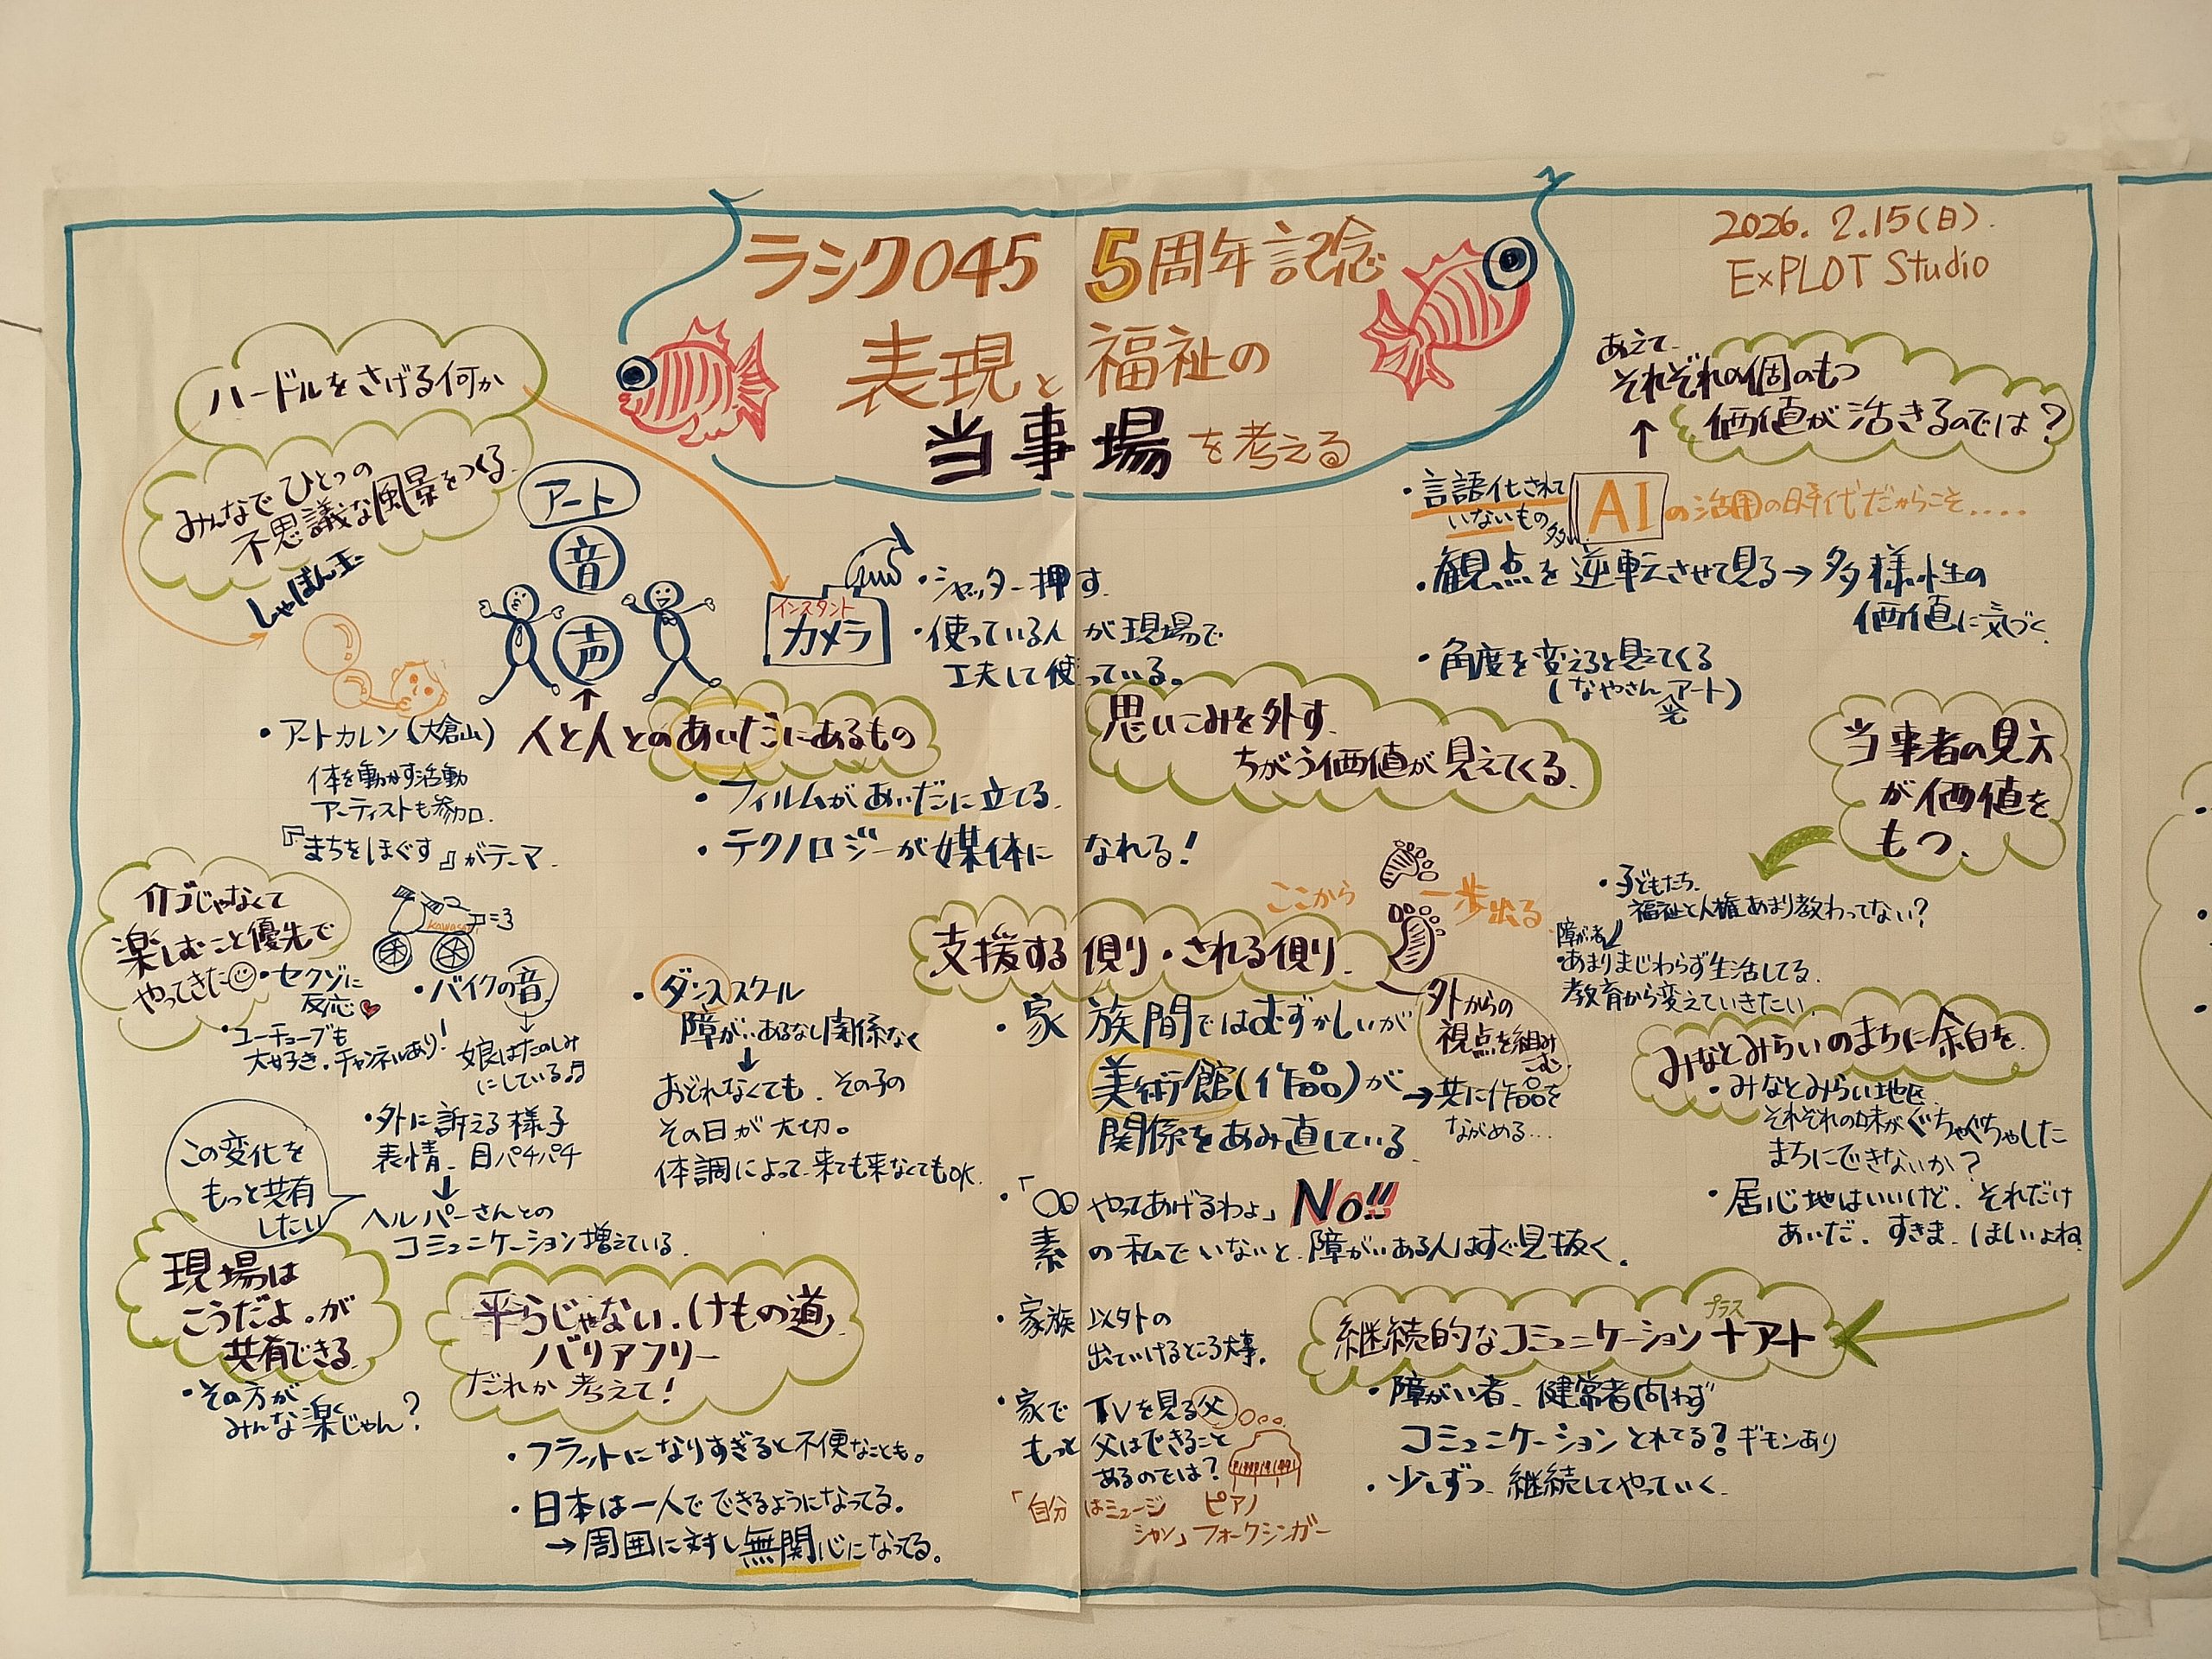 ラシク045 5周年記念
表現と福祉の
当事場を考える
2026.2.15(日).
ExPLOT Studio
ハードルをさげる何か
みんなでひとつの
不思議な風景をつくる
しゃぼん玉
アート
音
声
人と人とのあいだにあるもの
・フィルムがあいだに立てる.
・テクノロジーが媒体になれる!
インスタント
カメラ
・シャッター押す.
・使っている人が現場で
工夫して使っている。
・アートカレン(大倉山)
体を動かす活動
アーティストも参加.
『まちをほぐす』がテーマ.
介ゴじゃなくて
楽しむこと優先で
やってきた
・セクゾに
反応
・ユーチューブも
大好き.チャンネルあり!
kawasaki
・バイクの音
娘はたのしみ
にしている♫
・外に訴える様子
表情、目パチパチ
↓
ヘルパーさんとの
コミュニケーション増えている.
この変化を
もっと共有
したい
現場は
こうだよ。が
共有できる
・その方が
みんな楽じゃん?
・ダンススクール
障がいあるなし関係なく
↓
おどれなくても、その子の
その日が大切。
体調によって来ても来なくてもOK.
平らじゃない、けもの道
バリアフリー
だれか考えて!
・フラットになりすぎると不便なことも。
・日本は一人でできるようになってる。
→周囲に対し無関心になってる。
思いこみを外す.
ちがう価値が見えてくる.
ここから
一歩出る
支援する側・される側
・家族間ではむずかしいが
美術館(作品)が
関係をあみ直している
外からの
視点を組み
こむ.
→共に作品を
ながめる…
・「〇〇やってあげるわよ」No!!
素の私でいないと、障がいある人はすぐ見抜く.
・家族以外の
出ていけるところ大事.
・家でTVを見る父
もっと父はできること
あるのでは?
「自分はミュージ
シャン」
ピアノ
フォークシンガー
あえて
それぞれの個のもつ
価値が活きるのでは?
↑
AIの活用の時代だからこそ....
・言語化されて
いないもの多
・観点を逆転させて見る→多様性の
価値に気づく
・角度を変えると見えてくる
当事者の見方
が価値を
もつ、
・子どもたち、
福祉と人権あまり教わってない?
障がい者
・あまりまじわらず生活してる.
教育から変えていきたい
みなとみらいのまちに余白を
・みなとみらい地区
それぞれの味がぐちゃぐちゃした
まちにできないか?
・居心地はいいけど、それだけ
あいだ、すきま、ほしいよね
継続的なコミュニケーション+アート
プラス
・障がい者、健常者問わず
コミュニケーションとれてる?ギモンあり
・少しずつ継続してやっていく.